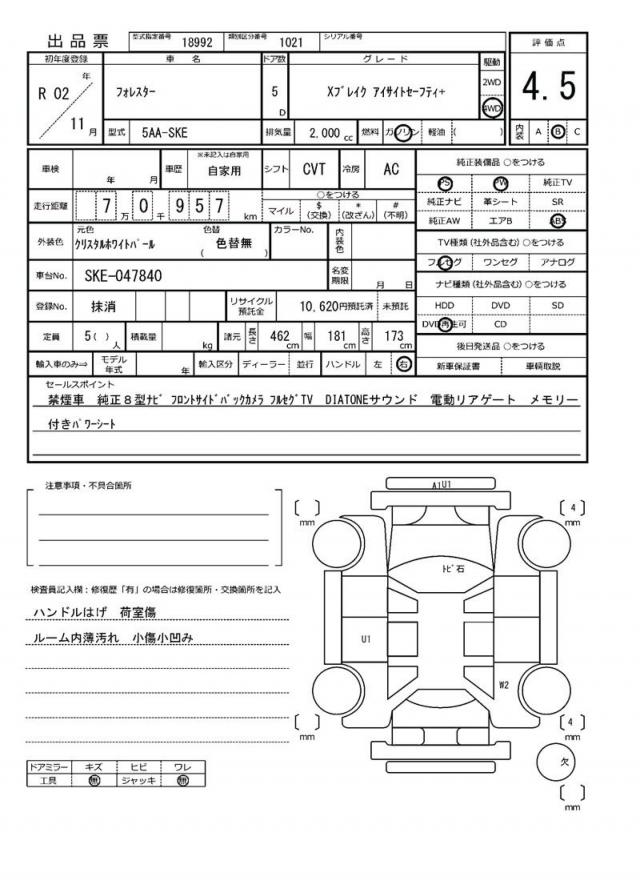 出品票 型式指定番号 18992 類別区分番号 1021 シリアル番号
評価点
4.5
初年度登録 車名 ドア数 グレード 駆動
R 02 年 11 月
フォレスター
5 D
Xブレイク アイサイトセーフティ+
2WD
4WD
型式 5AA-SKE 排気量 2,000 cc 燃料 ガソリン 軽油 ( )
内装 A B C
車検 年 月 車歴 ※未記入は自家用 自家用 シフト CVT 冷房 AC
走行距離 7 万 0 千 9 5 7 km
○をつける
マイル $(交換) *(改ざん) #(不明)
外装色 元色 クリスタルホワイトパール 色替 ( 色替無 ) カラーNo. 内装色
車台No. SKE-047840 名変期限 月 日
登録No. 抹消 リサイクル預託金 10,620円預託済 未預託
定員 5( ) 人 積載量 kg 諸元 長さ 462 cm 幅 181 cm 高さ 173 cm
輸入車のみ⇒ モデル年式 年 輸入区分 ディーラー 並行 ハンドル 左 右
純正装備品 ○をつける
PS PW 純正TV
純正ナビ 革シート SR
純正AW エアB ABS
TV種類(社外品含む) ○をつける
フルセグ ワンセグ アナログ
ナビ種類(社外品含む) ○をつける
HDD DVD SD
DVD再生可 CD
後日発送品 ○をつける
新車保証書 車輌取説
セールスポイント
禁煙車 純正8型ナビ フロントサイドバックカメラ フルセグTV DIATONEサウンド 電動リアゲート メモリー
付きパワーシート
注意事項・不具合箇所
検査員記入欄:修復歴「有」の場合は修復箇所・交換箇所を記入
ハンドルはげ 荷室傷
ルーム内薄汚れ 小傷小凹み
ドアミラー キズ ヒビ ワレ
工具 無 ジャッキ 無
A1U1
[ ] mm
[ 4 ] mm
トビ石
U1
W2
[ ] mm
[ 4 ] mm
欠
[ ] mm